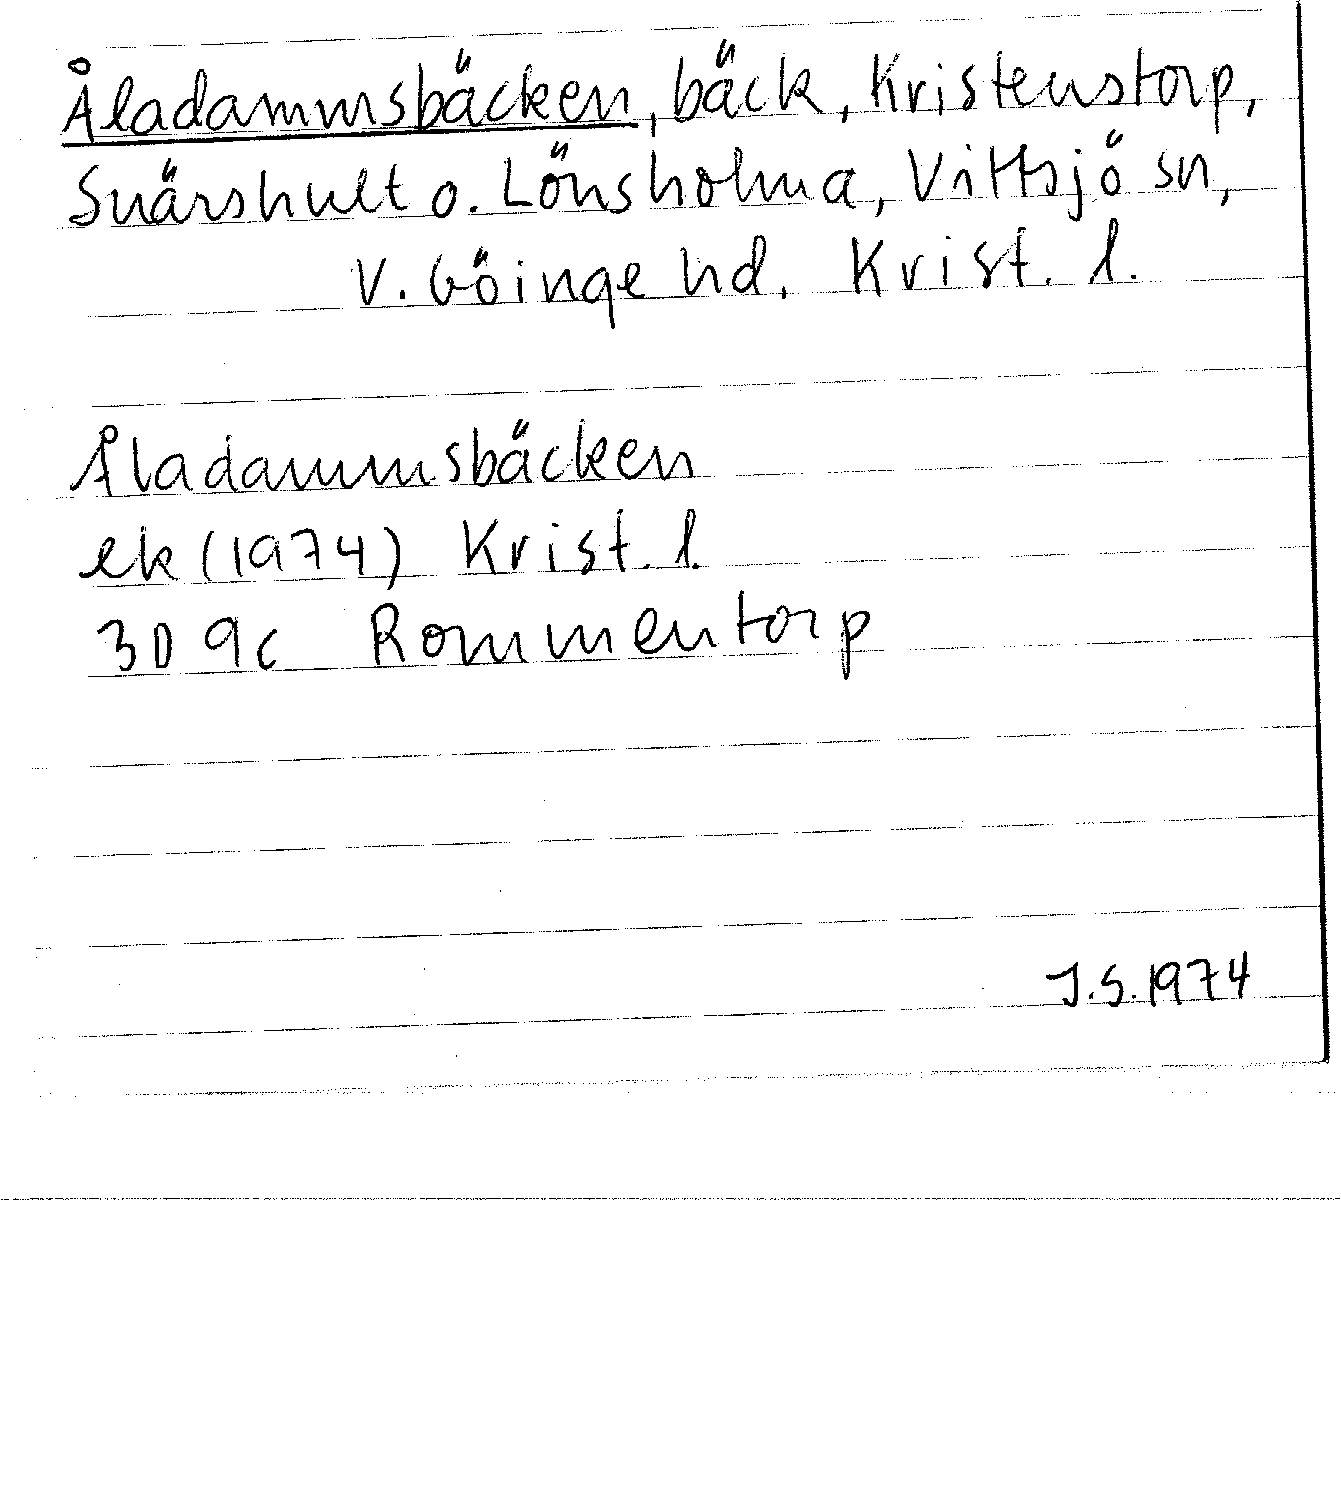 Åladammsbäcken, bäck, Kristenstorp,
Snärshult o. Lönsholma, Vittsjö sn,
V. Göinge hd, Krist. l.
Åladammsbäcken
ek (1974) Krist. l.
3D 9c Rommentorp
J.S. 1974